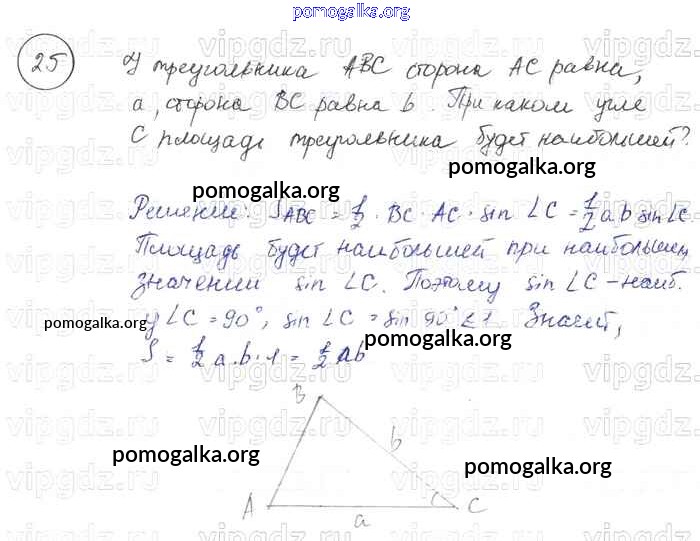 pomogalka.org
25
У треугольника ABC сторона AC равна,
a, сторона BC равна b При каком угле
C площадь треугольника будет наибольшей?
pomogalka.org
pomogalka.org
Решение: S ABC = 1/2 · BC · AC · sin ∠C = 1/2 a.b sin∠C
Площадь будет наибольшей при наибольшем
значении sin ∠C. Поэтому sin ∠C - наиб.
у ∠C = 90°, sin ∠C = sin 90° ≤ 1. Значит,
pomogalka.org
pomogalka.org
S = 1/2 a.b.1 = 1/2 ab
B
b
pomogalka.org
pomogalka.org
A
C
a
vipgdz.ru vipgdz.ru vipgdz.ru